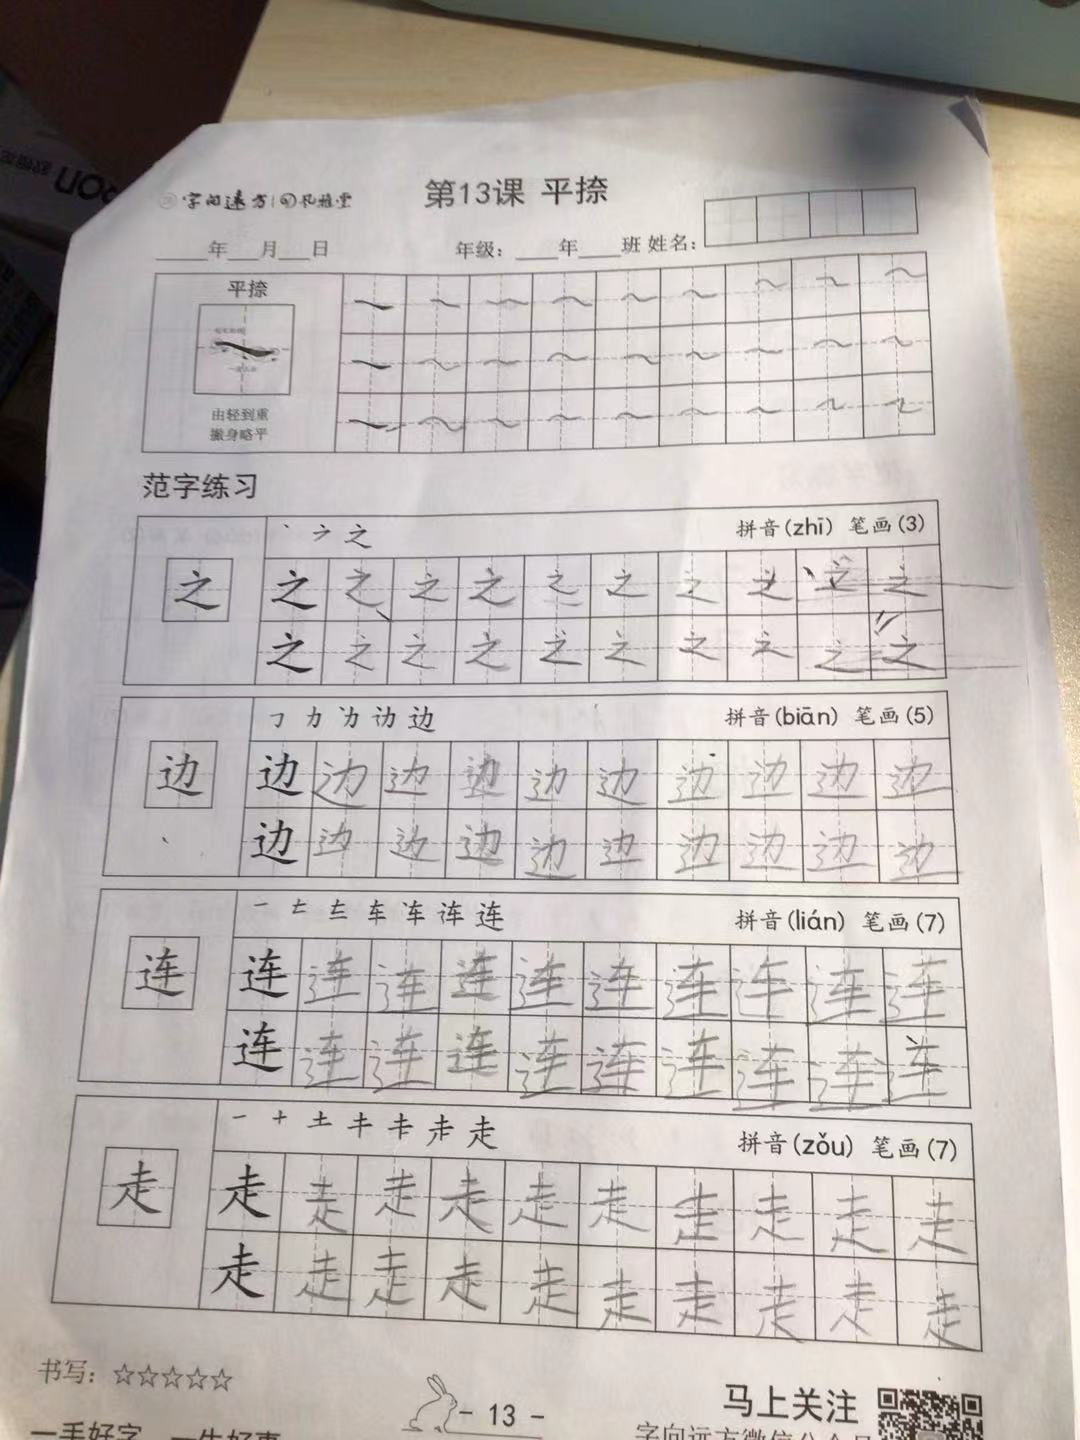 字向远方 孔雅堂
第13课 平捺
____年__月__日 年级：___年___班 姓名：
平捺
由轻到重
撇身略平
范字练习
丶 ㇇ 之 拼音(zhī) 笔画(3)
之 之 之 之 之 之 之 之 之 之 之
之 之 之 之 之 之 之 之 之 之
㇆ 力 边 拼音(biān) 笔画(5)
边 边 边 边 边 边 边 边 边 边 边
边 边 边 边 边 边 边 边 边 边
一 车 连 连 拼音(lián) 笔画(7)
连 连 连 连 连 连 连 连 连 连 连
连 连 连 连 连 连 连 连 连 连
一 十 土 走 拼音(zǒu) 笔画(7)
走 走 走 走 走 走 走 走 走 走 走
走 走 走 走 走 走 走 走 走 走
书写：☆☆☆☆☆
- 13 -
马上关注
一手好字
字向远方微信公众号